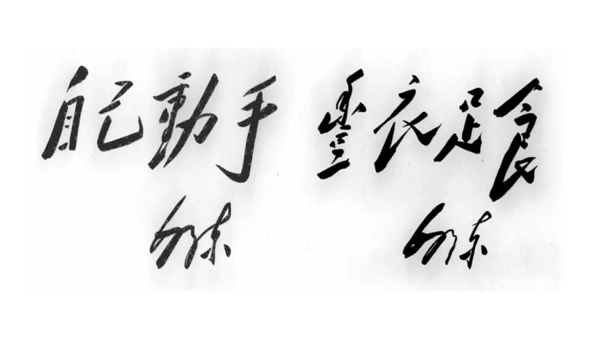 自己動手
毛泽东
豐衣足食
毛泽东